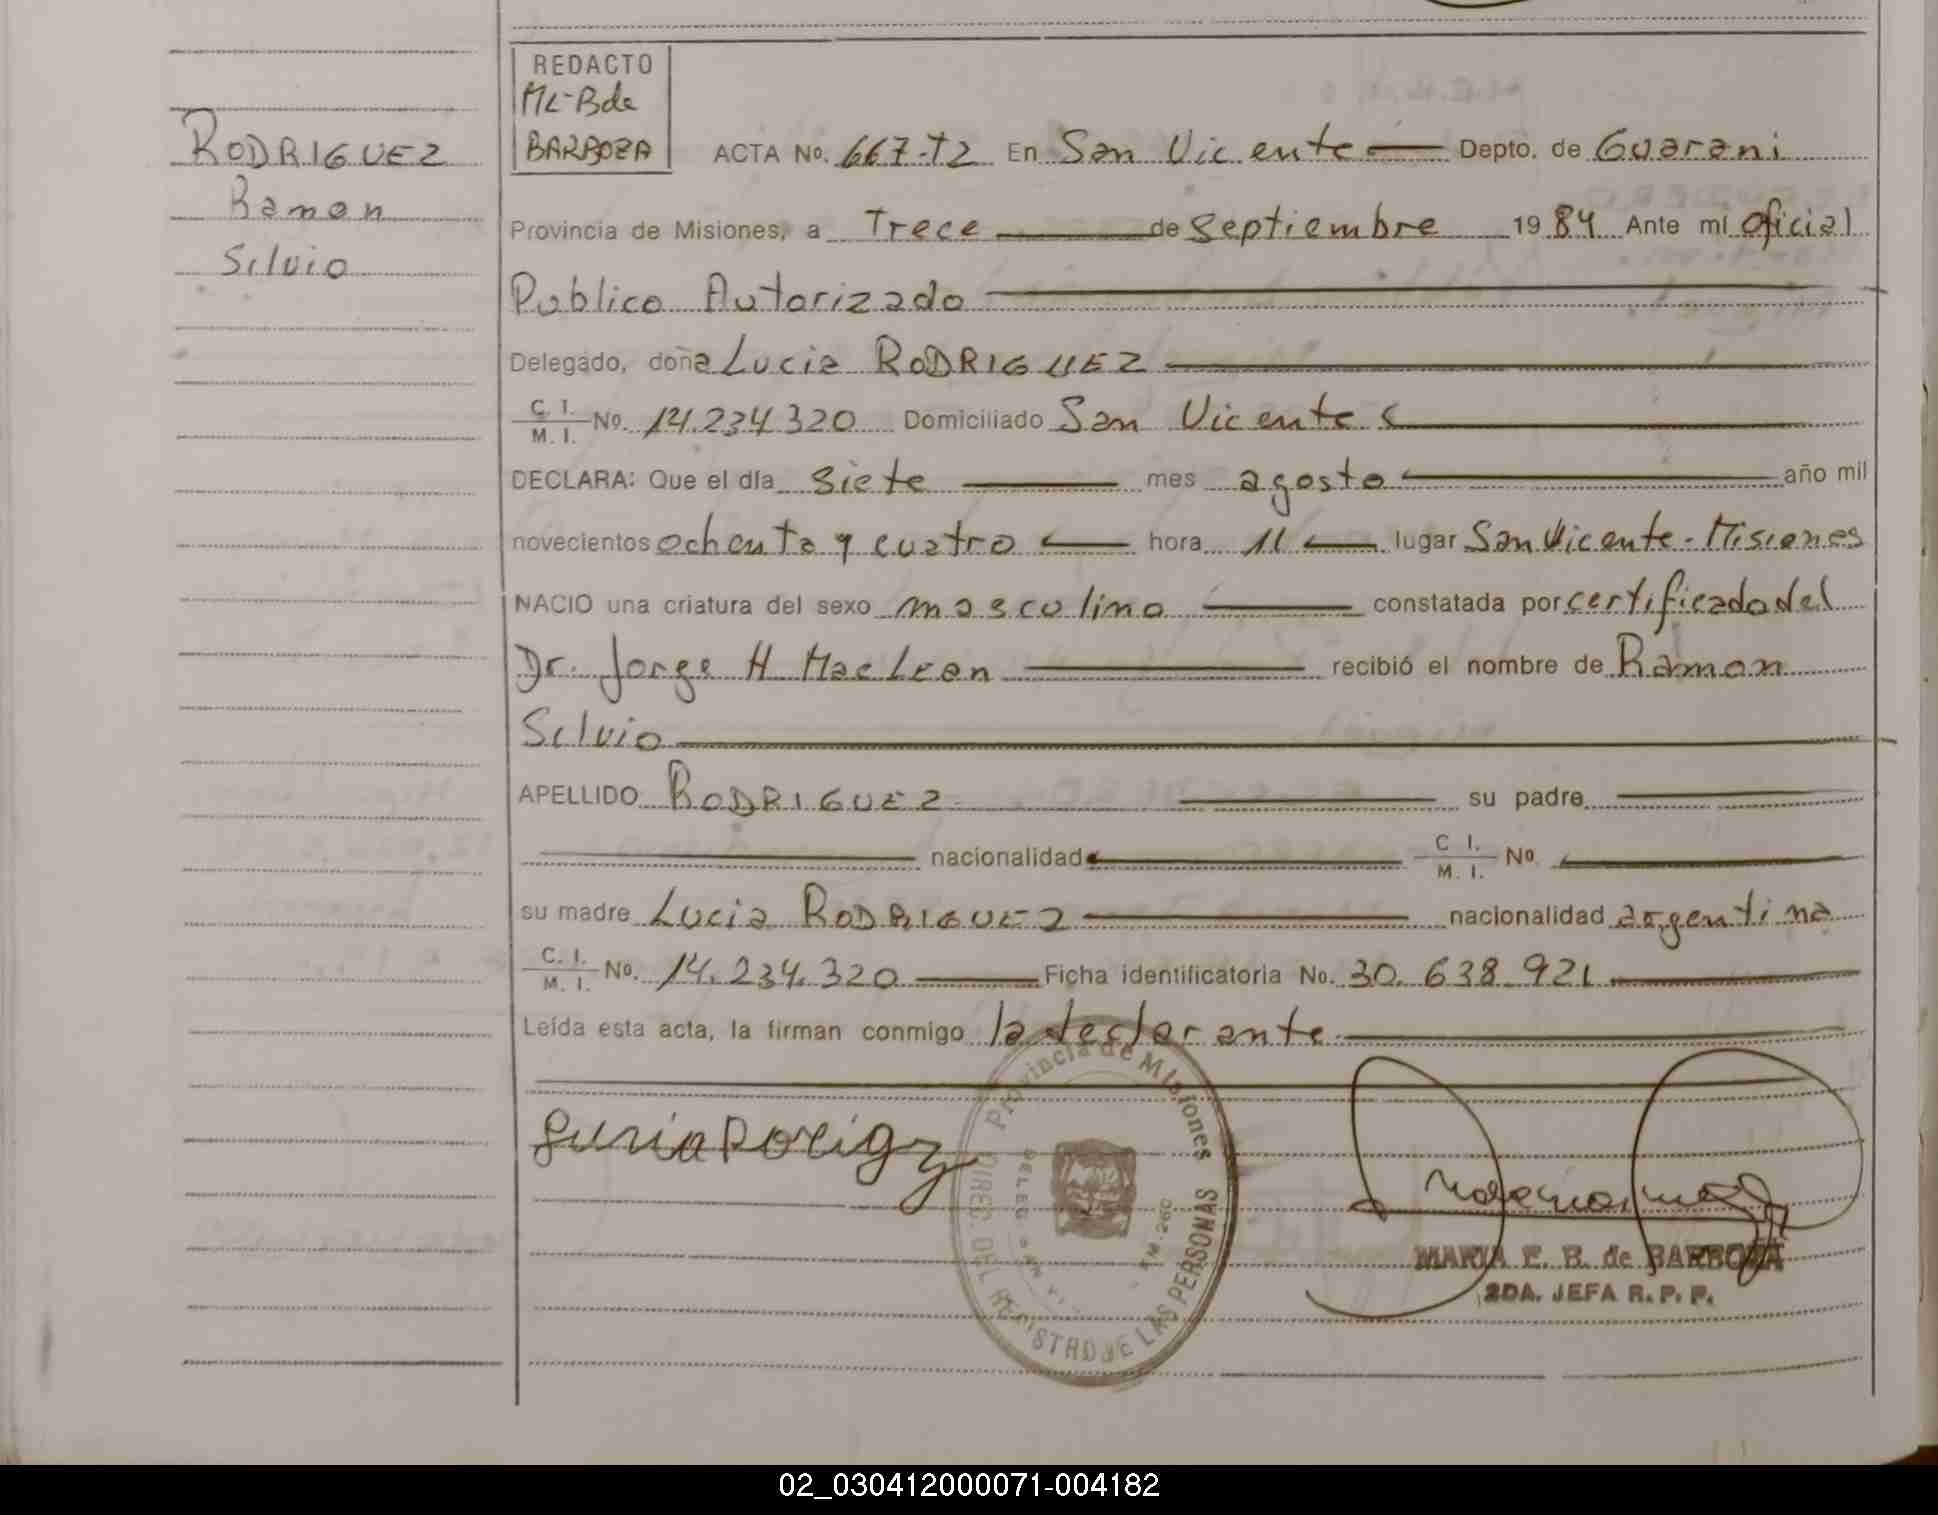 RODRIGUEZ
Ramon
Silvio
REDACTO
ML-Bde
BARBOZA
ACTA No. 667-T2 En San Vicente Depto. de Guarani
Provincia de Misiones, a Trece de septiembre 1984 Ante mí oficial
Publico Autorizado
Delegado, doña Lucia RODRIGUEZ
C. I. / M. I. No. 14.234.320 Domiciliado San Vicente
DECLARA: Que el día siete mes agosto año mil
novecientos ochenta y cuatro hora 11 lugar San Vicente-Misiones
NACIO una criatura del sexo masculino constatada por certificado del
Dr. Jorge H Mac Lean recibió el nombre de Ramon
Silvio
APELLIDO RODRIGUEZ su padre
nacionalidad C I. / M. I. No.
su madre Lucia RODRIGUEZ nacionalidad argentina
C. I. / M. I. No. 14.234.320 Ficha identificatoria No. 30.638.921
Leída esta acta, la firman conmigo la declarante
Provincia de Misiones
DIREC. DEL REGISTRO DE LAS PERSONAS
MARIA E. B. de BARBOZA
2DA. JEFA R. P. P.
02_030412000071-004182